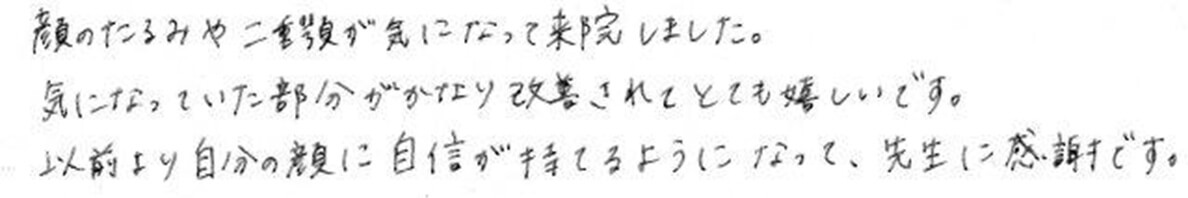 顔のたるみや二重顎が気になって来院しました。
気になっていた部分がかなり改善されてとても嬉しいです。
以前より自分の顔に自信が持てるようになって、先生に感謝です。